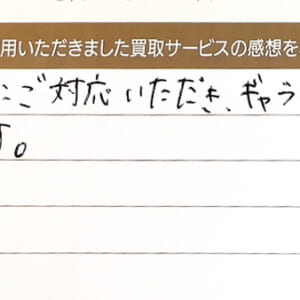 用いただきました買取サービスの感想を
にご対応いただき、ギャラ
す。